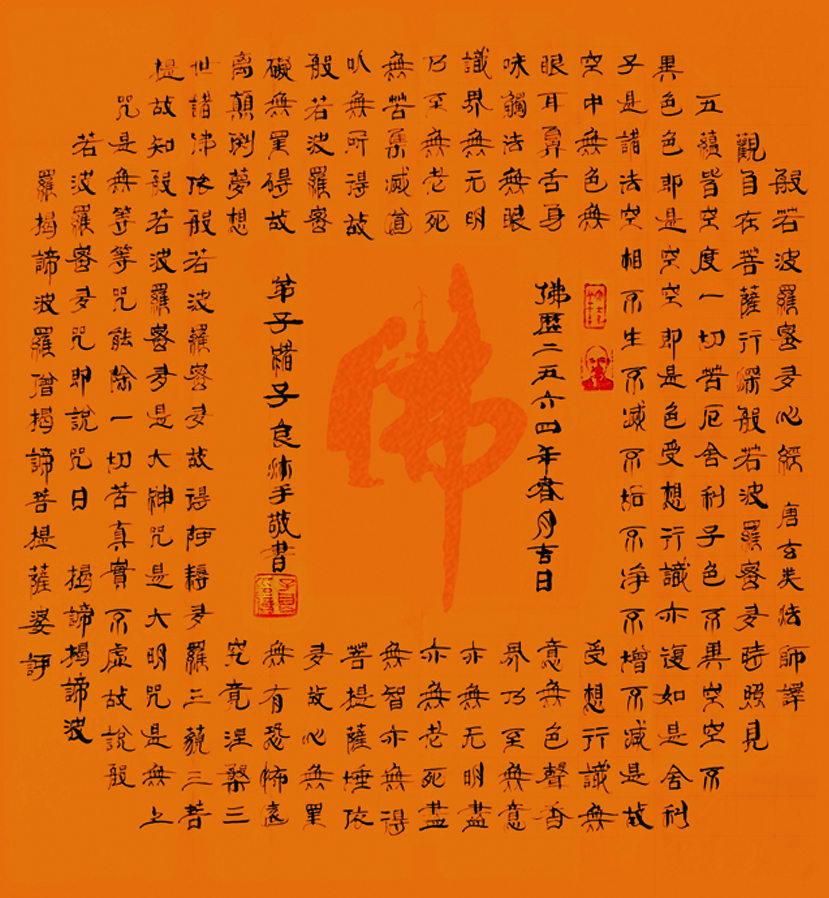 般若波羅蜜多心經 唐玄奘法師譯
觀自在菩薩行深般若波羅蜜多時照見
五蘊皆空度一切苦厄舍利子色不異空空不
異色色即是空空即是色受想行識亦復如是舍利
子是諸法空相不生不滅不垢不净不增不減是故
空中無色無
受想行識無
眼耳鼻舌身
意無色聲香
味觸法無眼
界乃至無意
識界無无明
亦無无明盡
乃至無老死
亦無老死盡
無苦集滅道
無智亦無得
以無所得故
菩提薩埵依
般若波羅蜜
多故心無罣
礙無罣碍故
無有恐怖遠
離顛倒夢想
究竟涅槃三
世諸佛依般若波羅蜜多故得阿耨多羅三藐三菩
提故知般若波羅蜜多是大神咒是大明咒是無上
咒是無等等咒能除一切苦真實不虛故說般
若波羅蜜多咒即說咒曰 揭諦揭諦波
羅揭諦波羅僧揭諦菩提薩婆訶
佛歷二五六四年春月吉日
佛
弟子楷子良沐手敬書